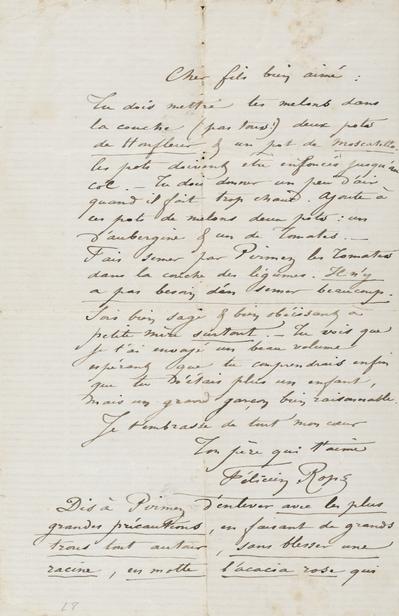 Cher fils bien aimé :
Tu dois mettre les melons dans
la couche (pas tous!) deux pots
de Honfleur & un pot de Moscatello
les pots doivent être enfoncés jusqu'au
col. — Tu dois donner un peu d'air
quand il fait trop chaud. Ajoute à
ces pots de melons deux pots : un
d'aubergine & un de Tomates. —
Fais semer par Pirmez les Tomates
dans la couche des légumes. Il n'y
a pas besoin d'en semer beaucoup.
Sois bien sage & bien obéissant à
petite mère surtout. — Tu vois que
je t'ai envoyé un beau volume
espérant que tu comprendrais enfin
que tu n'étais plus un enfant,
mais un grand garçon bien raisonnable.
Je t'embrasse de tout mon cœur
Ton père qui t'aime
Félicien Rops
Dis à Pirmez d'enlever avec les plus
grandes précautions, en faisant de grands
trous tout autour, sans blesser une
racine, en motte l'acacia rose qui